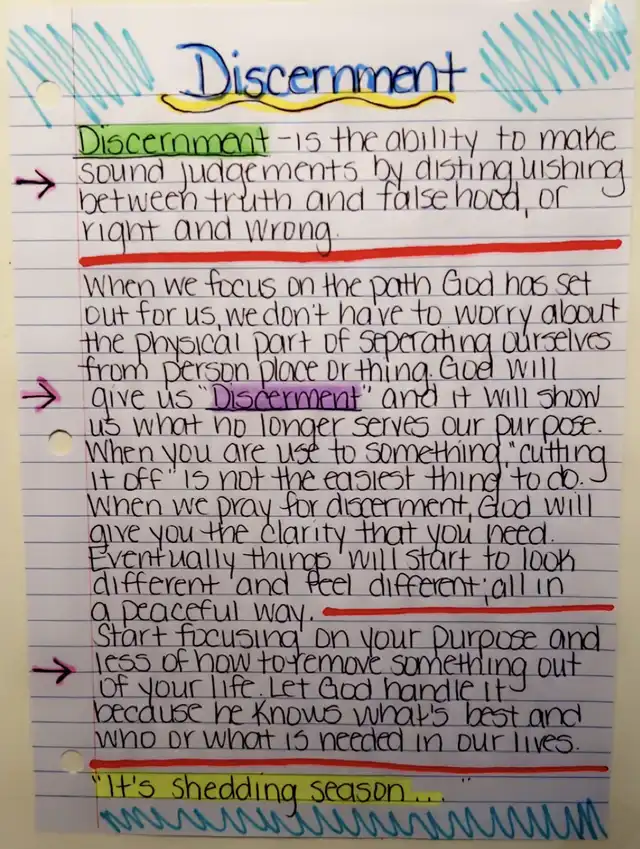 Discernment
Discernment -is the ability to make
sound judgements by distinguishing
between truth and falsehood, or
right and wrong.
When we focus on the path God has set
out for us, we don't have to worry about
the physical part of seperating ourselves
from person place or thing. God will
give us "Discerment" and it will show
us what no longer serves our purpose.
When you are use to something, "cutting
it off" is not the easiest thing to do.
When we pray for discerment, God will
give you the clarity that you need.
Eventually things will start to look
different and feel different; all in
a peaceful way.
Start focusing on your purpose and
less of how to remove something out
of your life. Let God handle it
because he knows what's best and
who or what is needed in our lives.
"It's shedding season... "